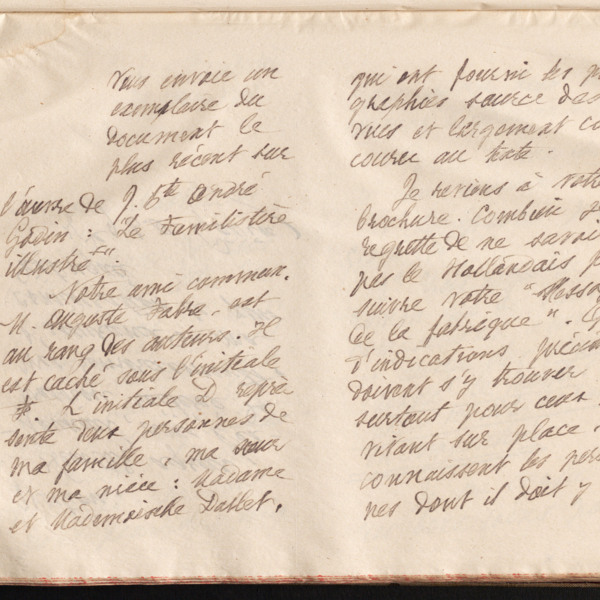 Vous envoie un
exemplaire du
document le
plus récent sur
l'œuvre de J. Bte André
Godin : "Le Familistère
illustré".
Notre ami commun,
M. Auguste Fabre, est
au rang des auteurs. Il
est caché sous l'initiale
L'initiale D repré
sente deux personnes de
ma famille, ma sœur
et ma nièce : Madame
et Mademoiselle Dallet.
qui ont fourni les p
graphies source des
vues et largement co
couru au texte.
Je reviens à Votre
brochure. Combien je
regrette de ne savoir
pas le Hollandais p
suivre votre "Messa
de la fabrique".
d'indications précieu
doivent s'y trouver
surtout pour ceux
vitant sur place
connaissent les per
nes dont il doit y